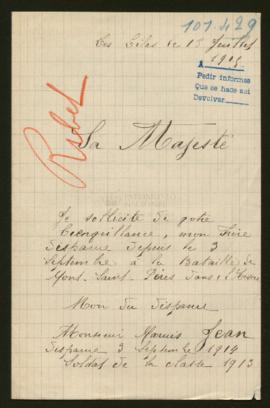 101.429
Les Lilas le 15 Juillet
1915.
A
Pedir informes
Que se hace así
Devolver
Ribet
Sa Majesté
Je sollicite de votre
mon frère
disparue depuis le 3
septembre à la Bataille de
Mont-Saint-Père dans l'Aisne
Nom du disparue
Monsieur Jean
disparue 3 Septembre 1914
Soldat de la classe 1913